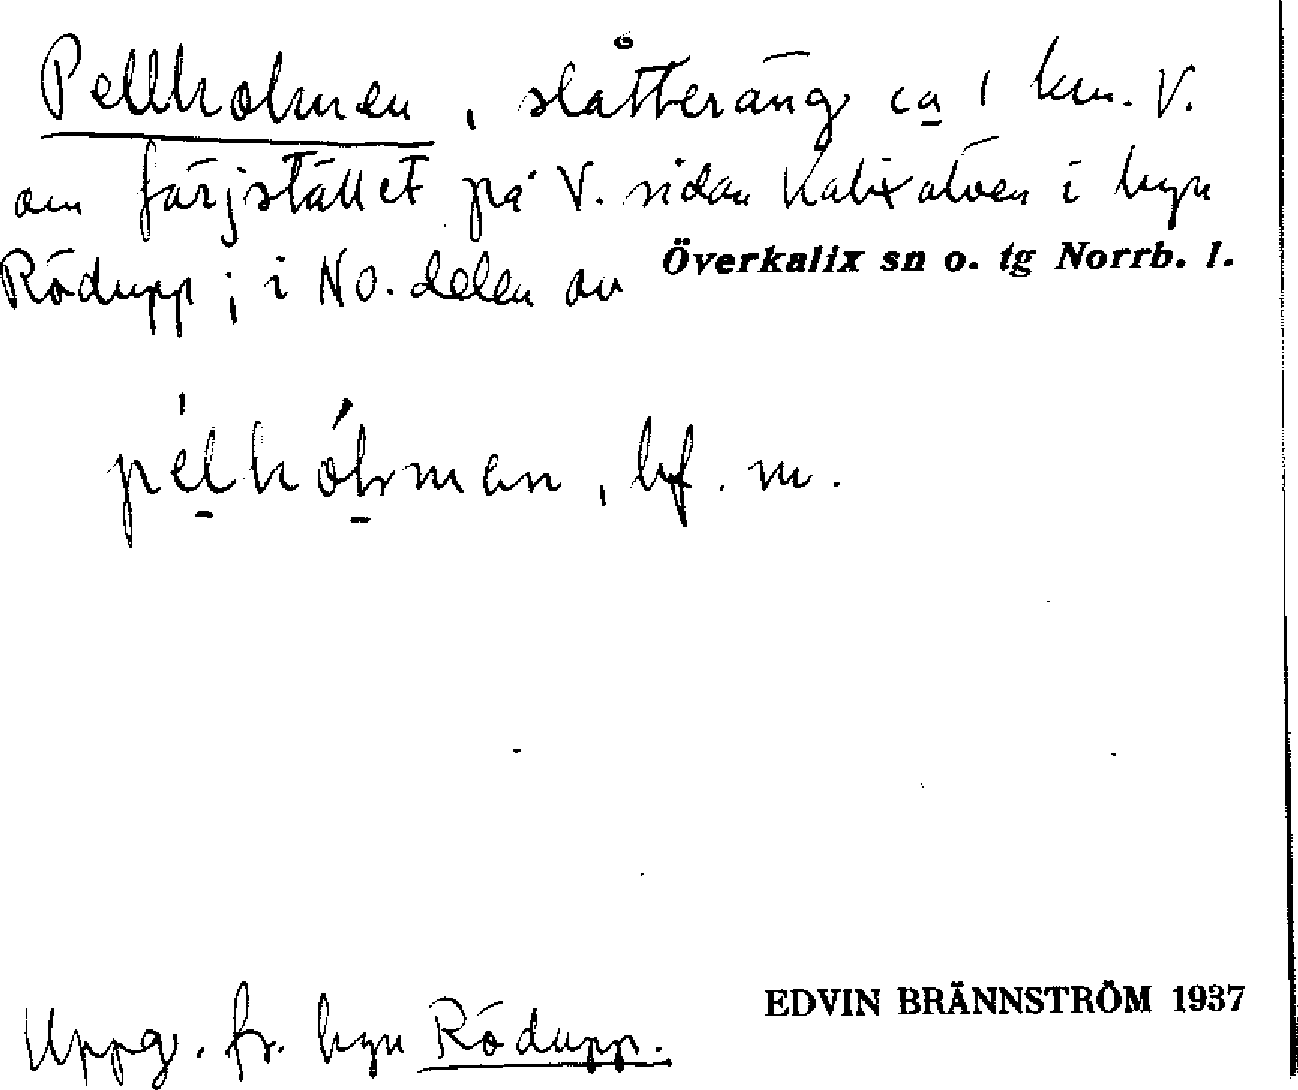 Pellholmen, slåtteräng ca 1 km. V.
om färjstället på V. sidan Kalixälven i byn
Rödupp; i NO. delen av Överkalix sn o. tg Norrb. l.
pelhólmen, bf. m.
EDVIN BRÄNNSTRÖM 1937
Uppg. fr. byn Rödupp.